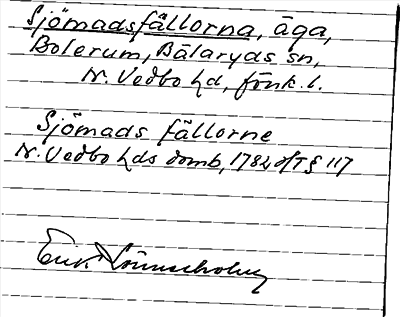 Sjömadsfällorna, äga,
Bolerum, Bälaryds sn,
N. Vedbo hd, Jönk. l.
Sjömads fällorne
N. Vedbo hds domb, 1782, HT § 117
Erik Lönnerholm